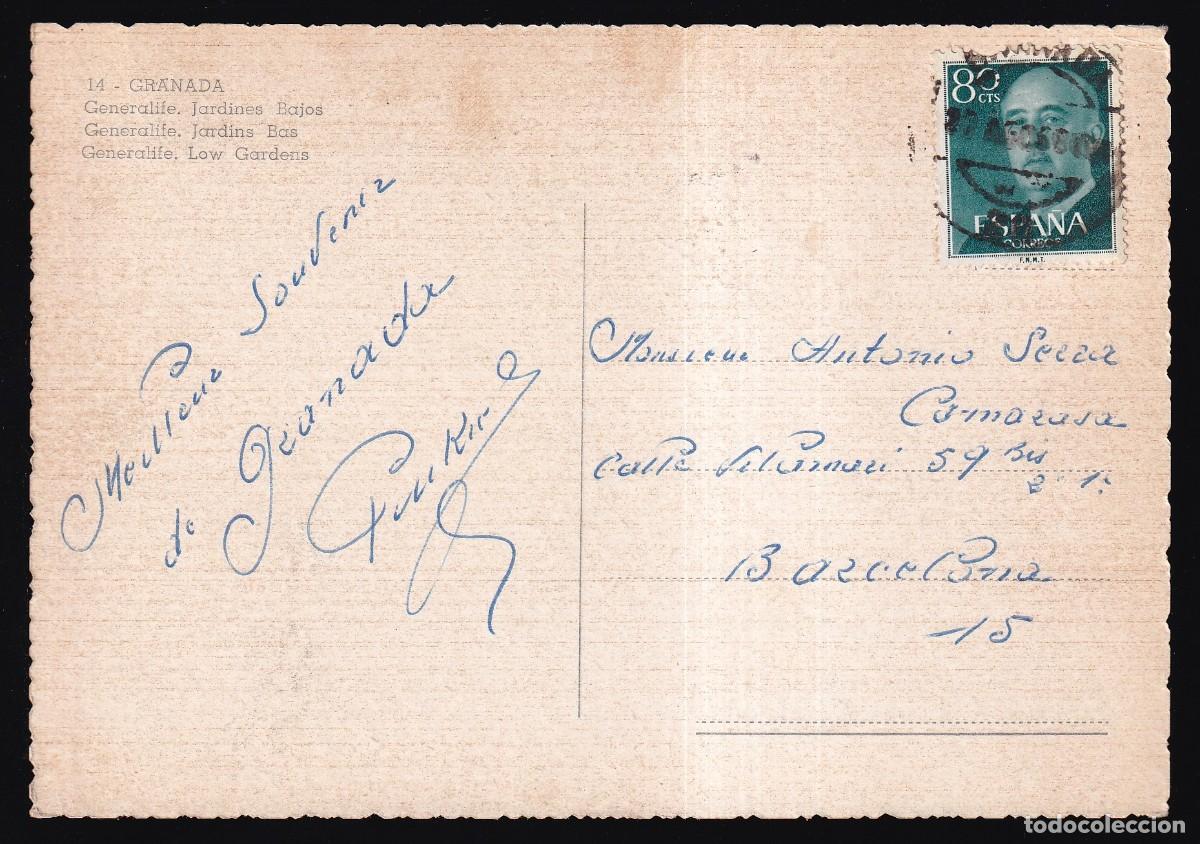 14 - GRANADA
Generalife. Jardines Bajos
Generalife. Jardins Bas
Generalife. Low Gardens
Meilleur Souvenir
de Granada
80
CTS
ESPAÑA
CORREOS
F.N.M.T.
Monsieur Antonio Serra
Camarasa
Calle Vilamari 59 Bis
2º 1ª
Barcelona
15
todocoleccion